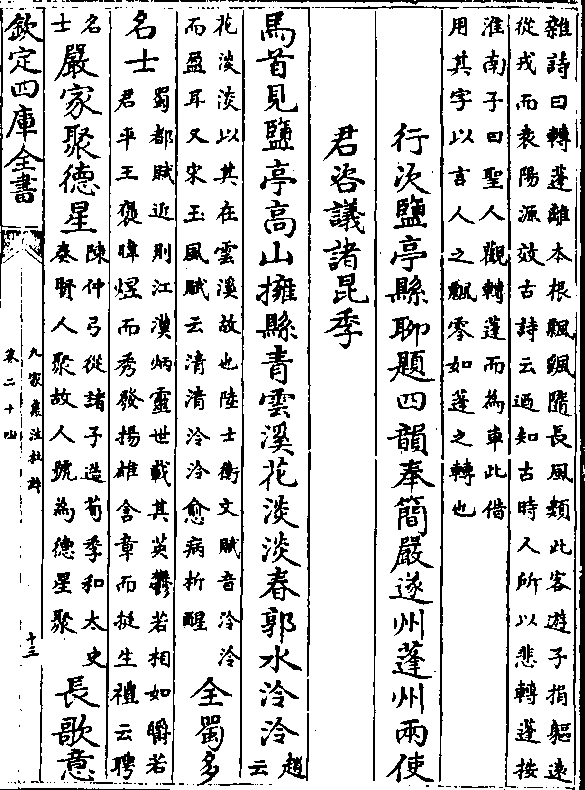 雜詩曰轉蓬離本根飄飖隨長風類此客遊子捐軀遠
從戎而袁陽源效古詩云迺知古時人所以悲轉蓬按
淮南子曰聖人觀轉蓬而為車此借
用其字以言人之飄零如蓬之轉也
行次鹽亭縣聊題四韻奉簡嚴遂州蓬州兩使
君咨議諸昆季
馬首見鹽亭高山擁縣青雲溪花淡淡春郭水泠泠趙云
花淡淡以其在雲溪故也陸士衡文賦音泠泠
而盈耳又宋玉風賦云清清泠泠愈病析酲
全蜀多
名士
蜀都賦近則江漢炳靈世載其英鬱若相如皭若
君平王褒暐煜而秀發揚雄含章而挺生禮云聘
名士
嚴家聚德星
陳仲弓從諸子造荀季和太史
奏賢人聚故人號為德星聚
長歌意
欽定四庫全書
九家集注杜詩
卷二十四
十三